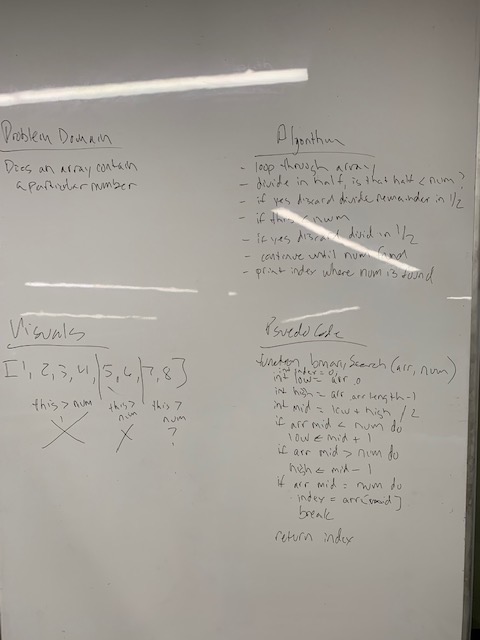 Problem Domain
Does an array contain
a particular number
Algorithm
- loop through array
- divide in half, is that half < num?
- if yes discard divide remainder in 1/2
- if this < num
- if yes discard divid in 1/2
- continue until num found
- print index where num is found
Visuals
[1, 2, 3, 4, | 5, 6, | 7, 8]
this > num
this >
num
this >
num
?
Psuedo Code
function binarySearch (arr, num)
int index = 0;
int low = arr 0
int high = arr.length-1
int mid = low + high / 2
if arr mid < num do
low ← mid + 1
if arr mid > num do
high ← mid - 1
if arr mid = num do
index = arr[mid]
break
return index